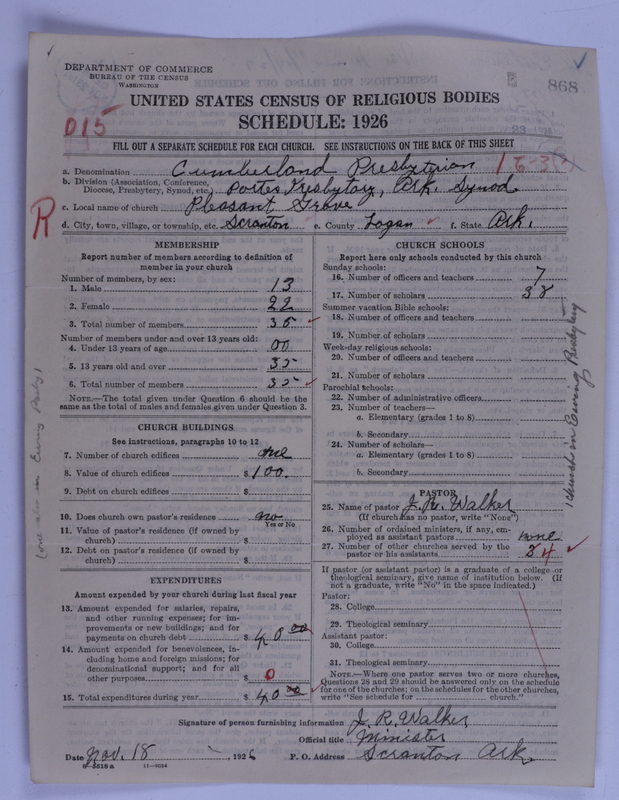 DEPARTMENT OF COMMERCE
BUREAU OF THE CENSUS
WASHINGTON
868
UNITED STATES CENSUS OF RELIGIOUS BODIES
SCHEDULE: 1926
015
FILL OUT A SEPARATE SCHEDULE FOR EACH CHURCH. SEE INSTRUCTIONS ON THE BACK OF THIS SHEET
a. Denomination Cumberland Presbyterian
b. Division (Association, Conference, Diocese, Presbytery, Synod, etc.) Portes Presbytory, Ark. Synod
c. Local name of church Pleasant Grove
R
d. City, town, village, or township, etc. Scranton e. County Logan f. State Ark.
MEMBERSHIP
Report number of members according to definition of member in your church
Number of members, by sex:
1. Male 13
2. Female 22
3. Total number of members 35
Number of members under and over 13 years old:
4. Under 13 years of age 00
5. 13 years old and over 35
6. Total number of members 35
NOTE.—The total given under Question 6 should be the same as the total of males and females given under Question 3.
CHURCH BUILDINGS
See instructions, paragraphs 10 to 12
7. Number of church edifices one
8. Value of church edifices $ 100.
9. Debt on church edifices $
10. Does church own pastor's residence no
Yes or No
11. Value of pastor's residence (if owned by church) $
12. Debt on pastor's residence (if owned by church) $
EXPENDITURES
Amount expended by your church during last fiscal year
13. Amount expended for salaries, repairs, and other running expenses; for improvements or new buildings; and for payments on church debt $ 40 00
14. Amount expended for benevolences, including home and foreign missions; for denominational support; and for all other purposes $ 0
15. Total expenditures during year $ 40 00
CHURCH SCHOOLS
Report here only schools conducted by this church
Sunday schools:
16. Number of officers and teachers 7
17. Number of scholars 38
Summer vacation Bible schools:
18. Number of officers and teachers
19. Number of scholars
Week-day religious schools:
20. Number of officers and teachers
21. Number of scholars
Parochial schools:
22. Number of administrative officers
23. Number of teachers—
a. Elementary (grades 1 to 8)
b. Secondary
24. Number of scholars—
a. Elementary (grades 1 to 8)
b. Secondary
PASTOR
25. Name of pastor J. R. Walker
(If church has no pastor, write "None")
26. Number of ordained ministers, if any, employed as assistant pastors none
27. Number of other churches served by the pastor or his assistants 4
If pastor (or assistant pastor) is a graduate of a college or theological seminary, give name of institution below. (If not a graduate, write "No" in the space indicated.)
Pastor:
28. College
29. Theological seminary
Assistant pastor:
30. College
31. Theological seminary
NOTE.—Where one pastor serves two or more churches, Questions 28 and 29 should be answered only on the schedule for one of the churches; on the schedules for the other churches, write "See schedule for church."
1 church in Ewing Presbytery
(one also in Ewing Presby)
Signature of person furnishing information J. R. Walker
Official title Minister
Date Nov. 18, 1926 P. O. Address Scranton Ark.
8-5518a 11-9024